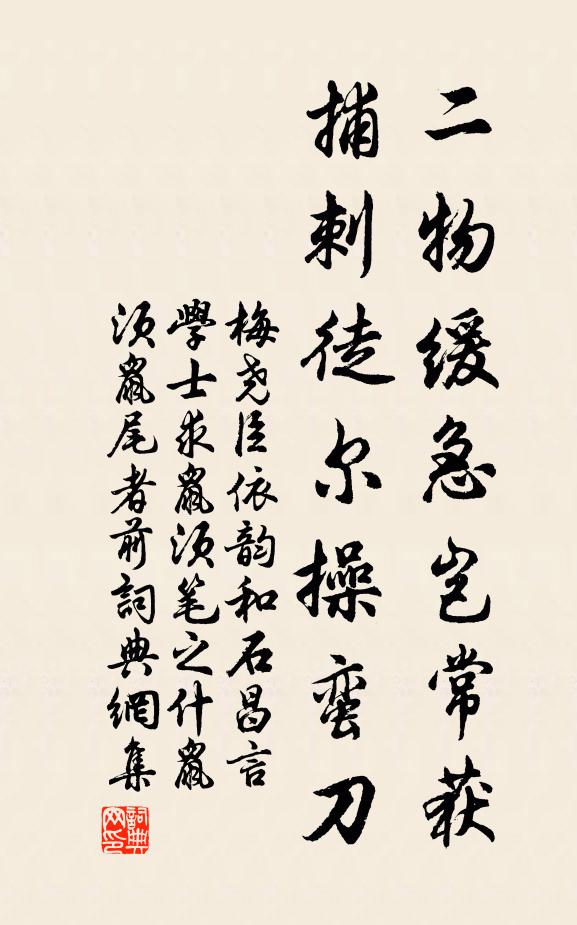 二物缓急岂常获
捕刺徒尔操蛮刀
梅尧臣依韵和石昌言
學士求鼠须笔之什鼠
须鼠尾者前詞典網集
詞典
网印